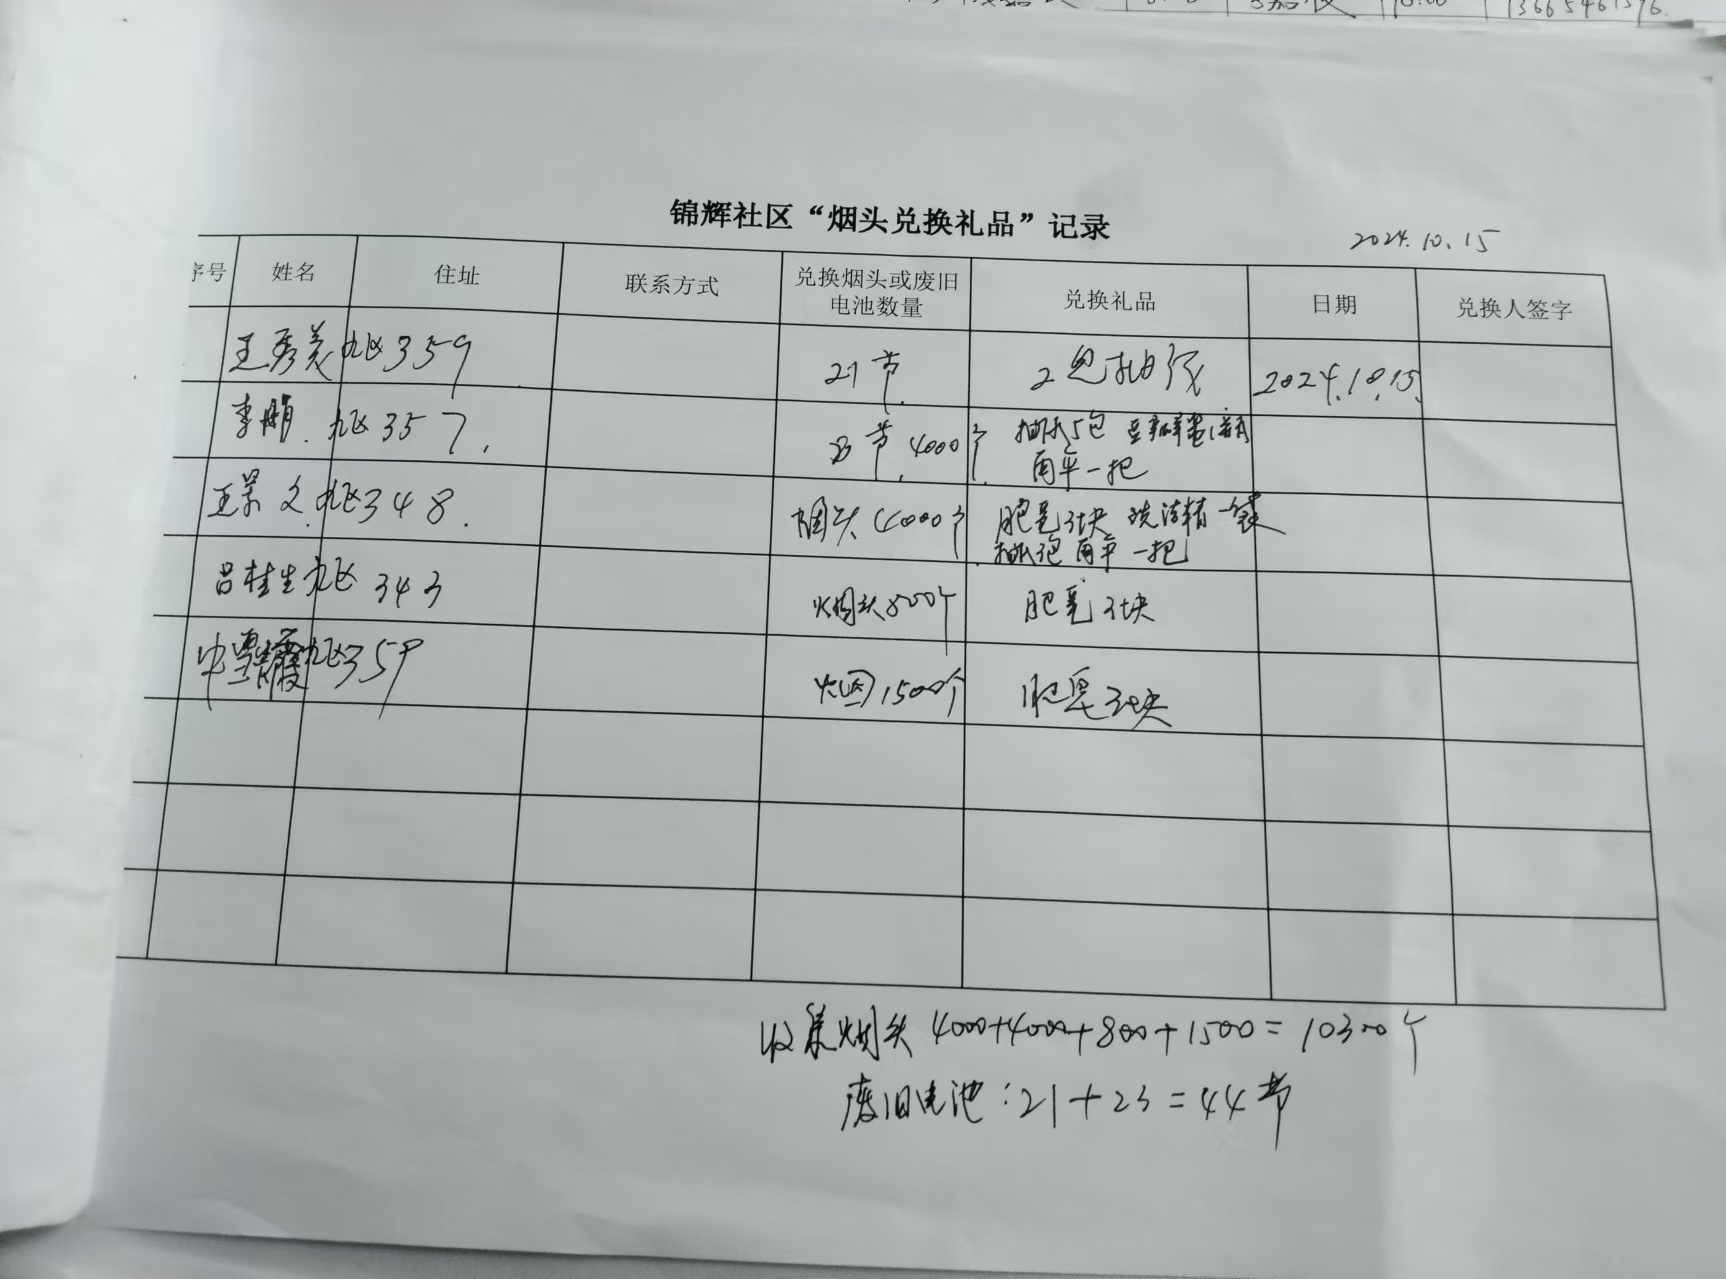 13665461396.
锦辉社区“烟头兑换礼品”记录
2024.10.15
序号 姓名 住址 联系方式 兑换烟头或废旧电池数量 兑换礼品 日期 兑换人签字
王秀美 九区359 21节. 2包抽纸 2024.10.15.
李鹏. 九区357. 23节, 4000个. 抽纸5包
雨伞一把
王景文. 九区348. 烟头4000个 肥皂3块 洗洁精一袋
抽纸3包 雨伞一把
吕桂生 九区 343 烟头800个 肥皂3块
九区359 烟1500个 肥皂3块
收集烟头 4000+4000+800+1500=10300个
废旧电池:21+23=44节